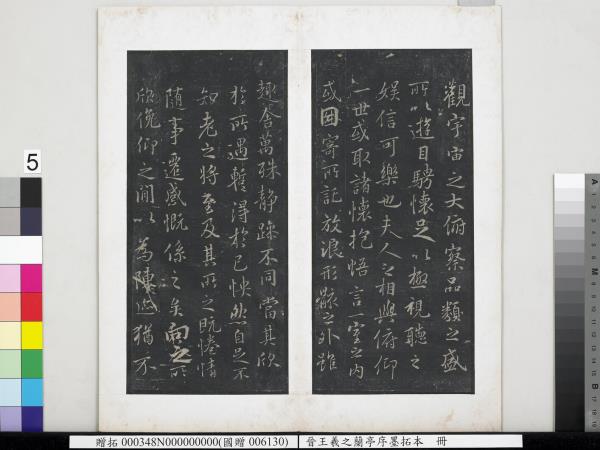 觀宇宙之大俯察品類之盛
所以遊目騁懷足以極視聽之
娛信可樂也夫人之相與俯仰
一世或取諸懷抱悟言一室之內
或因寄所託放浪形骸之外雖
趣舍萬殊靜躁不同當其欣
於所遇暫得於己怏然自足不
知老之將至及其所之既惓情
隨事遷感慨係之矣向之所
欣俛仰之間以為陳迹猶不
5
贈拓 000348N000000000(國贈 006130)
晉王羲之蘭亭序墨拓本 冊
A 1 2 3 4 5 6 M 8 9 10 11 12 13 14 15 B 17 18 19